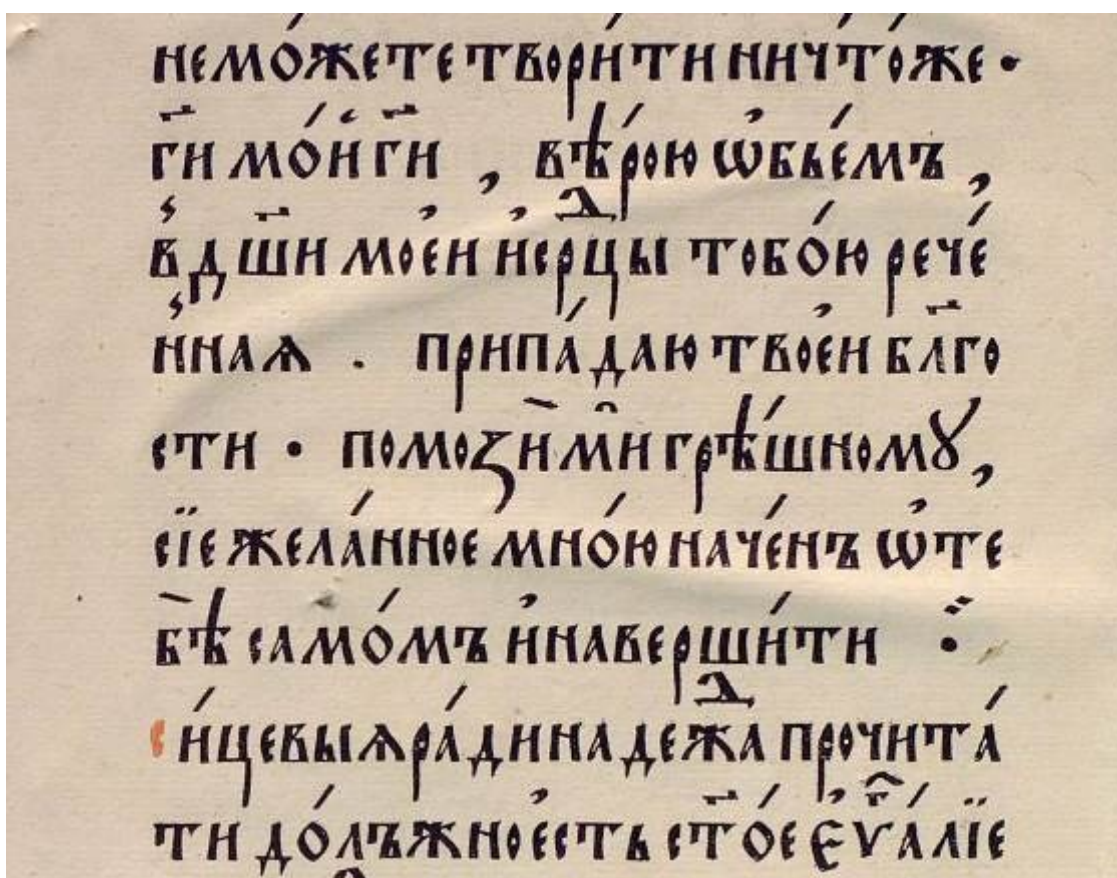 не мо́жете твори́ти ничто́же ·
гⷭ҇и мо́й гⷭ҇и , вѣ́рою ѡ҆бье́мъ ,
в̾ дш҃и моеѝ и҆ срⷣцы тобо́ю рече́
н̾ная . припа́даю твое҆и бл҃го
сти · помозѝ ми̑ грѣ́шному ,
сїе жела́нное мно́ю наче́нъ ѡ҆ те
бѣ̀ само́мъ и҆ наверши́ти :
си́цевыя ра́ди надеⷤда прочита́
ти до́лъжно е҆сть ст҃о́е є҆ѵⷢ҇а́лїе